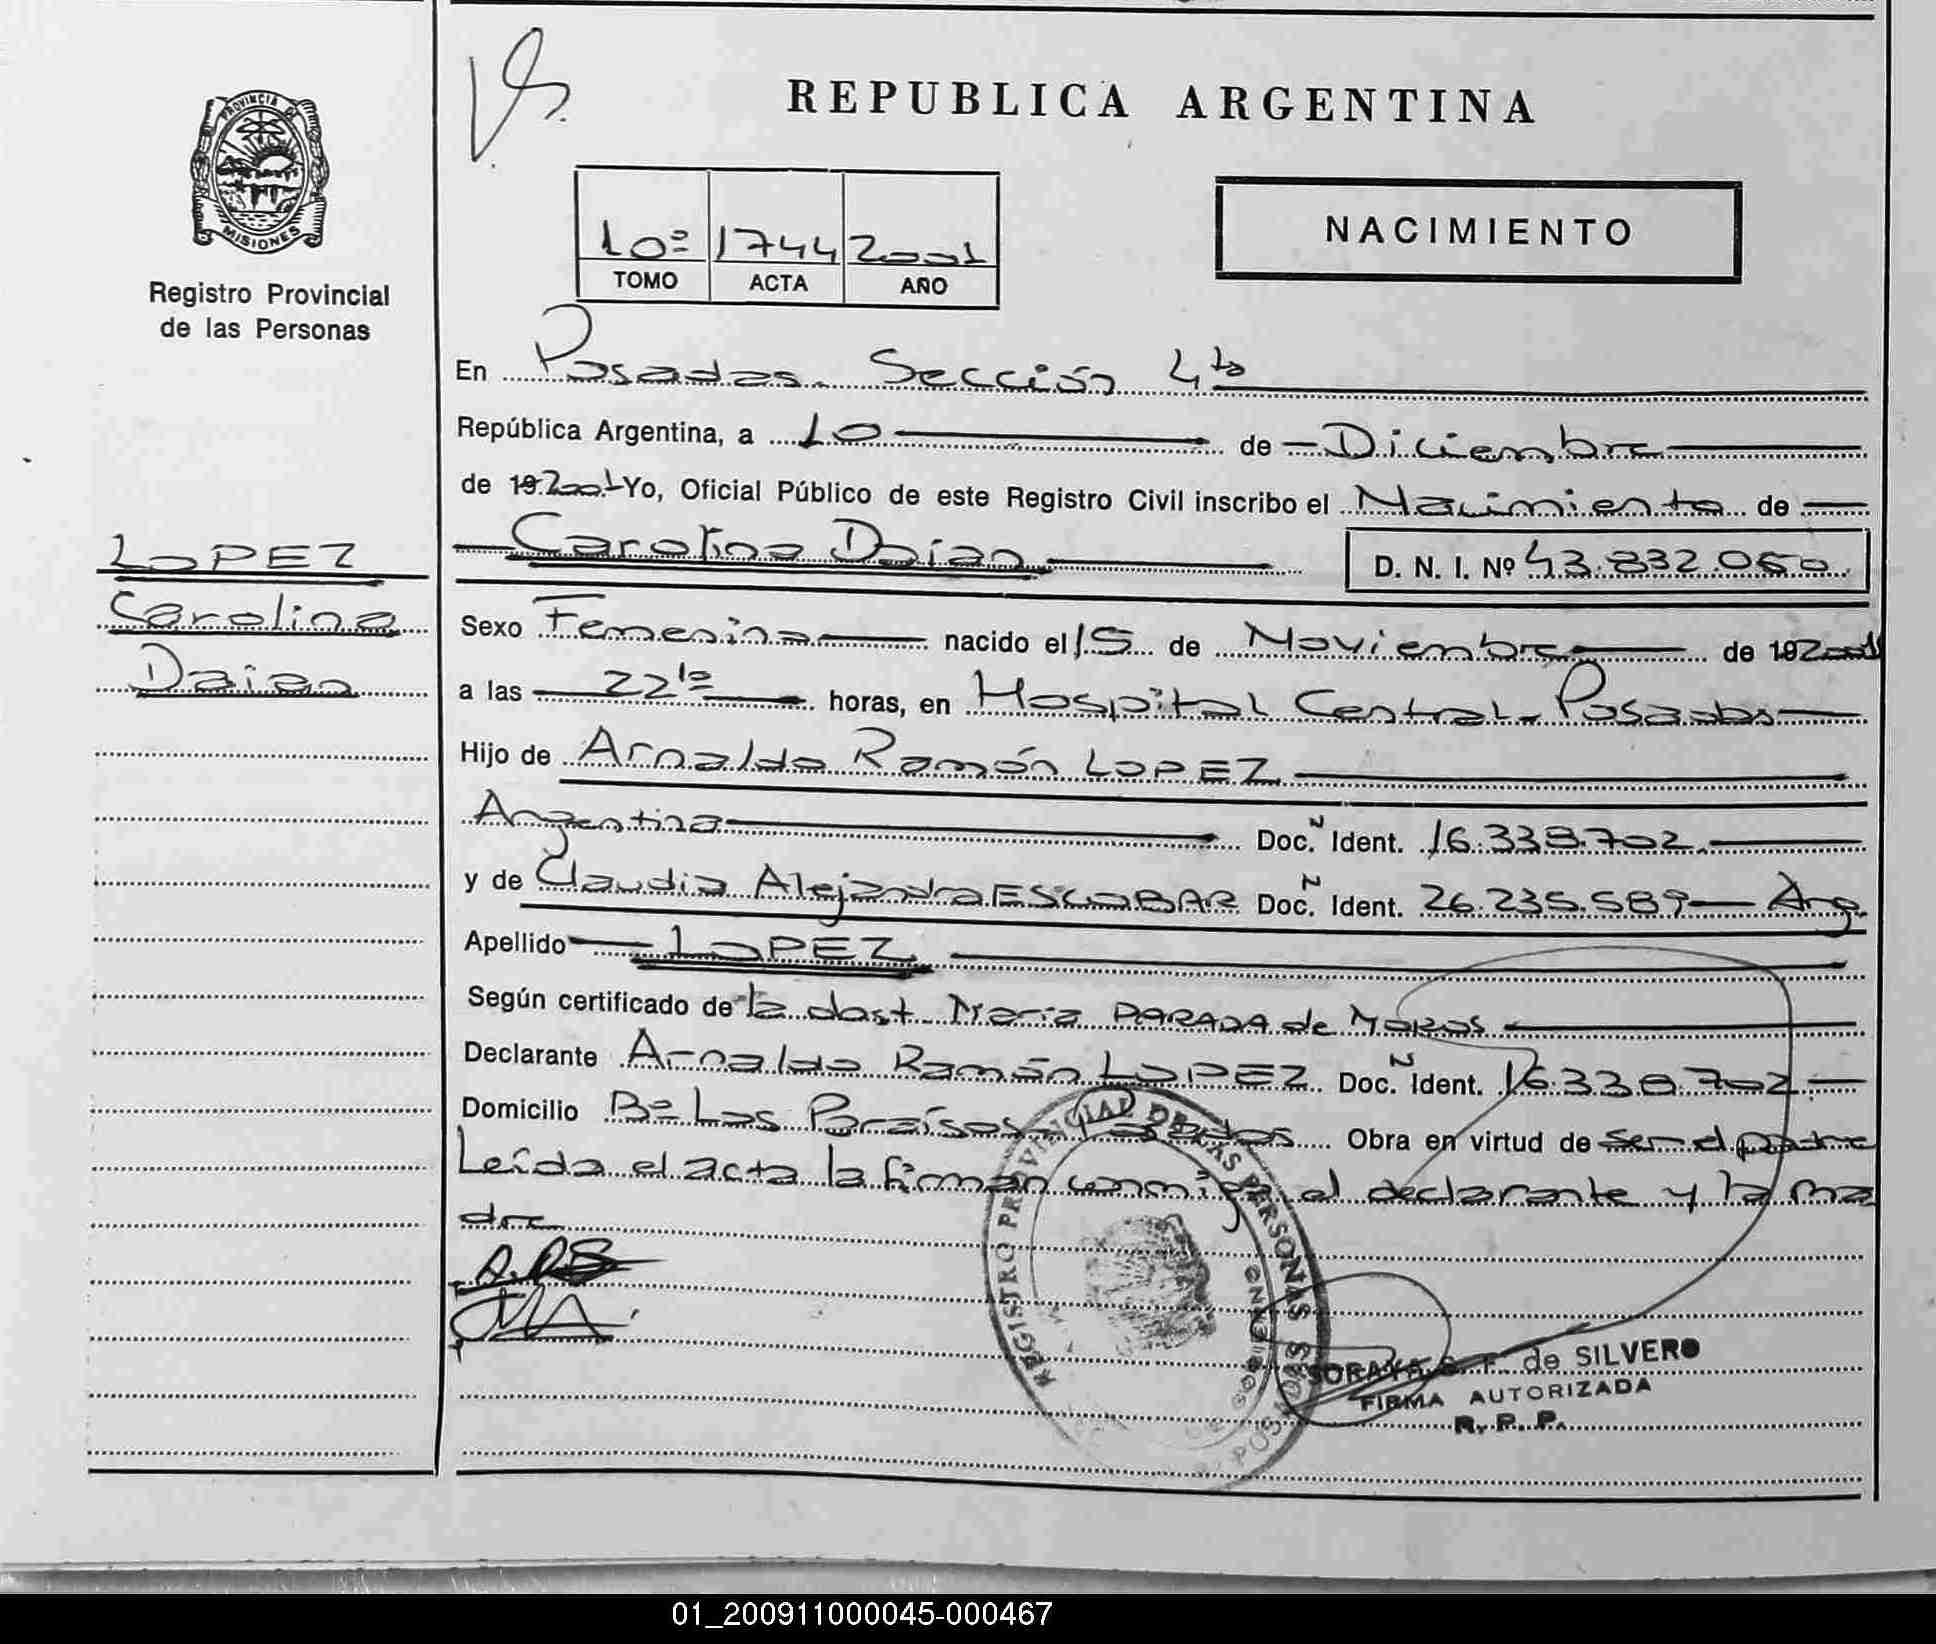 REPUBLICA ARGENTINA
PROVINCIA DE
MISIONES
Registro Provincial
de las Personas
10º 1744 2001
TOMO ACTA AÑO
NACIMIENTO
En Posadas. Sección 4ta
República Argentina, a 10 de Diciembre
de 19 2001 Yo, Oficial Público de este Registro Civil inscribo el Nacimiento de
Carolina Daian D. N. I. Nº 43.832.060
LOPEZ
Carolina
Daian
Sexo Femenina nacido el 15 de Noviembre de 19 2001
a las 22 horas, en Hospital Central - Posadas
Hijo de Arnaldo Ramón LOPEZ
Argentina Doc. N Ident. 16.338.702
y de Claudia Alejandra ESCOBAR Doc. N Ident. 26.235.589 Arg.
Apellido LOPEZ
Según certificado de la obst. Maria PARADA de MOROS
Declarante Arnaldo Ramón LOPEZ Doc. N Ident. 16.338.702
Domicilio Bº Los Paraísos Posadas Obra en virtud de ser el padre
Leída el acta la firman conmigo el declarante y la ma
dre
REGISTRO PROVINCIAL DE LAS PERSONAS
POSADAS
SORAYA de SILVERO
FIRMA AUTORIZADA
R. P. P.
01_200911000045-000467